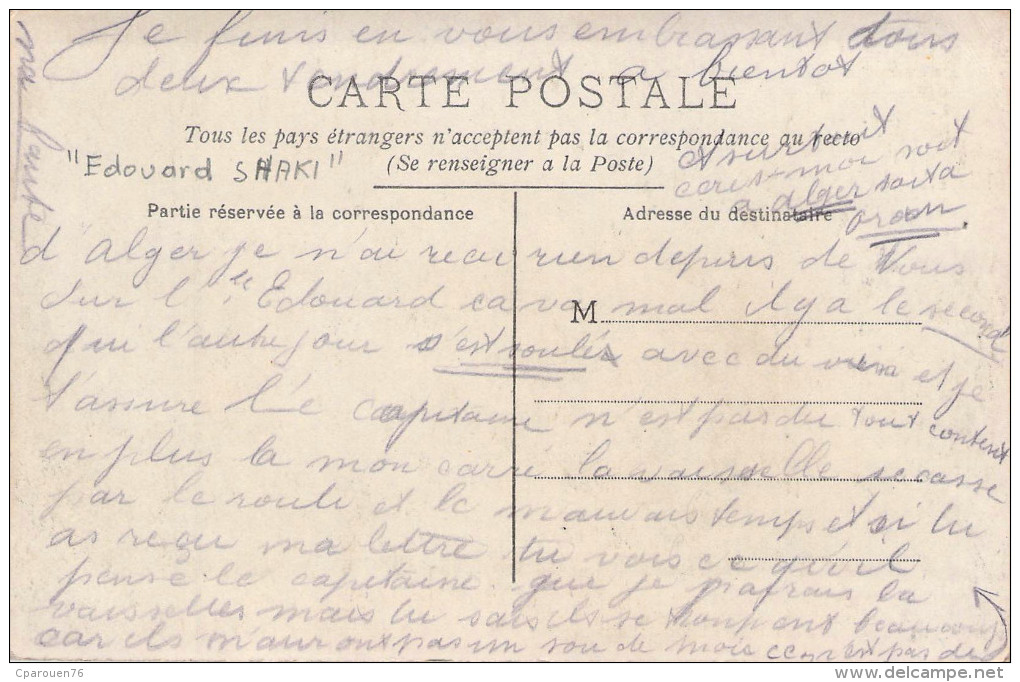 Je finis en vous embrassant tous
deux tendrement a bientot
CARTE POSTALE
Tous les pays étrangers n'acceptent pas la correspondance au recto
(Se renseigner a la Poste)
"Edouard SHAKI"
et surtout
ecris-moi soit
a alger soit a
oran.
Partie réservée à la correspondance
Adresse du destinataire
ma
d'Alger je n'ai recu rien depuis de Vous
Sur l' Edouard ca va mal il y a le second
M
qui l'autre jour s'est soulé avec du et je
t'assure le capitaine n'est pas du tout content
en plus la mon carré la vaisselle se casse
par le roulé et le mauvais temps et si tu
as reçu ma lettre tu vois ce qu'il
pense le capitaine que je la
vaisselles mais tu sais ils se trompent beaucoup
car ils m'auront pas un sou de moi c'est pas de
Cparouen76
delcampe.net